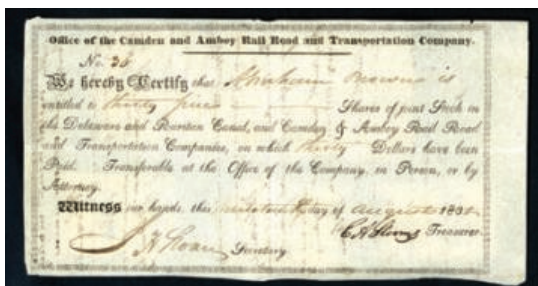 Office of the Camden and Amboy Rail Road and Transportation Company.
No. 36
We hereby Certify that Abraham Brown is
entitled to thirty five Shares of joint Stock in
the Delaware and Raritan Canal, and Camden & Amboy Rail Road
and Transportation Companies, on which thirty Dollars have been
Paid. Transferable at the Office of the Company, in Person, or by
Attorney.
Witness our hands, this day of august 183
Secretary.
Treasurer